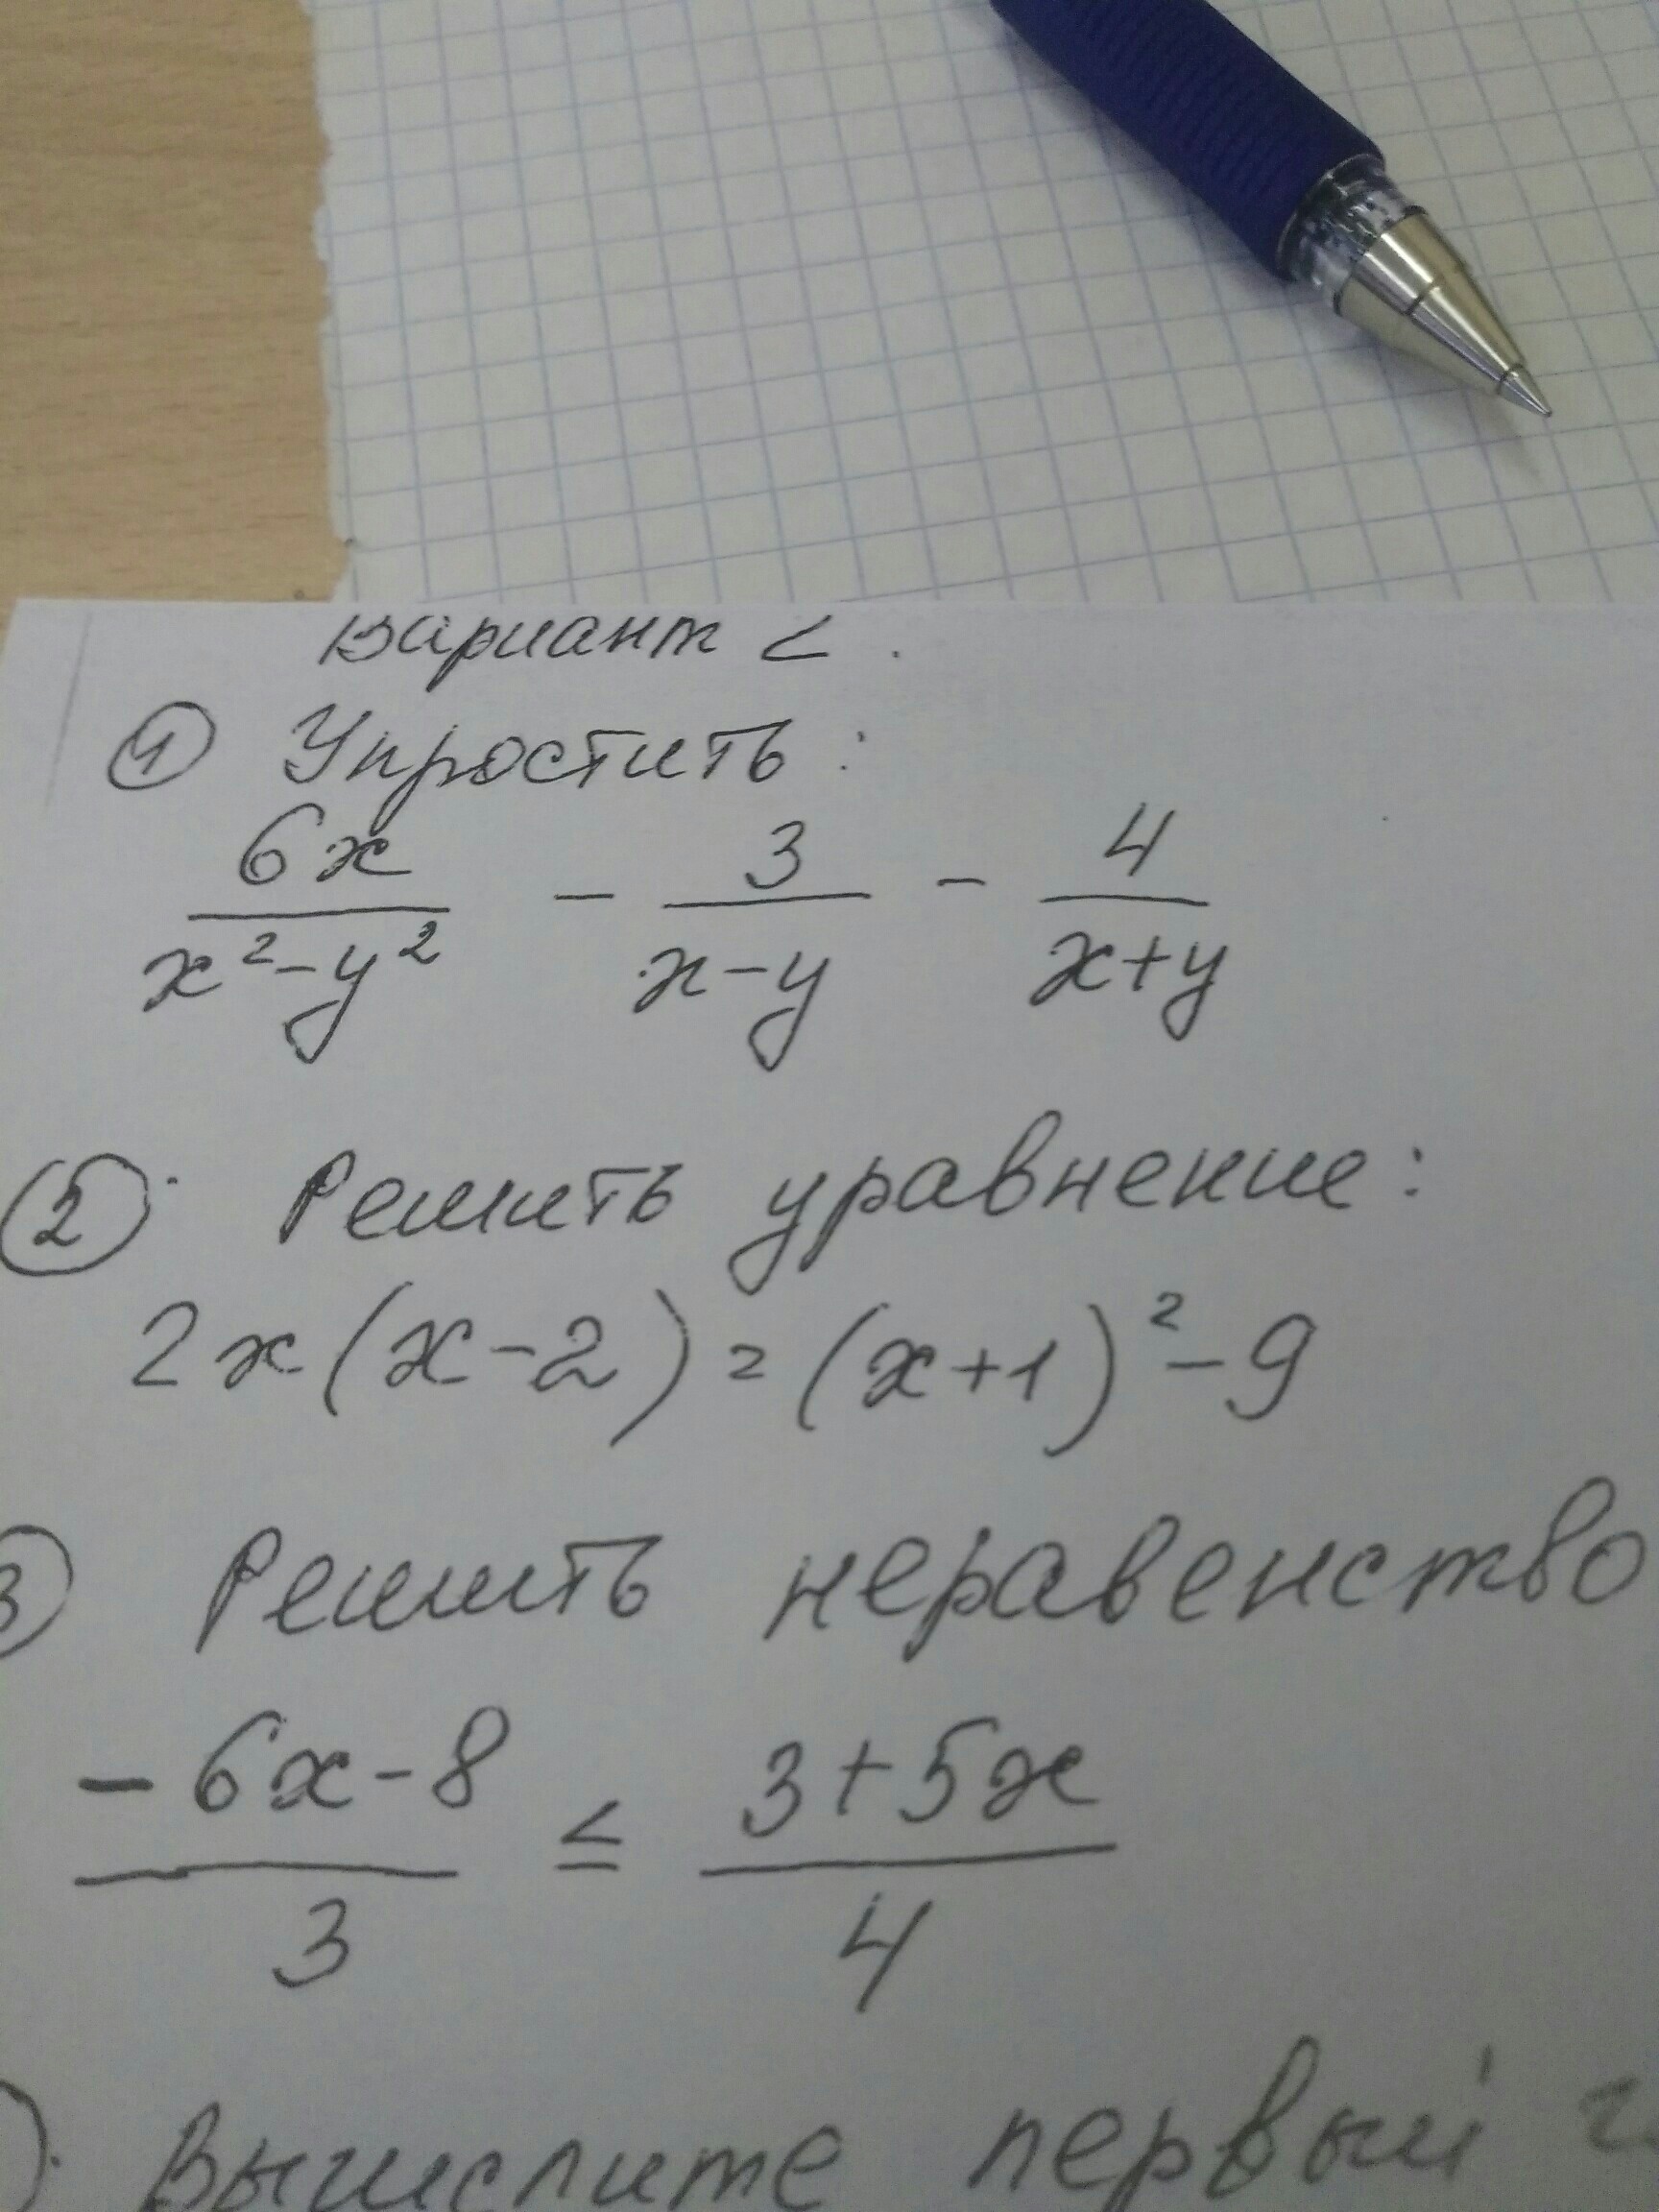 Вариант 2.
① Упростить:
6x/(x²-y²) - 3/(x-y) - 4/(x+y)
② Решить уравнение:
2x(x-2) = (x+1)²-9
③ Решить неравенство
(-6x-8)/3 ≤ (3+5x)/4
). Вычислите первый